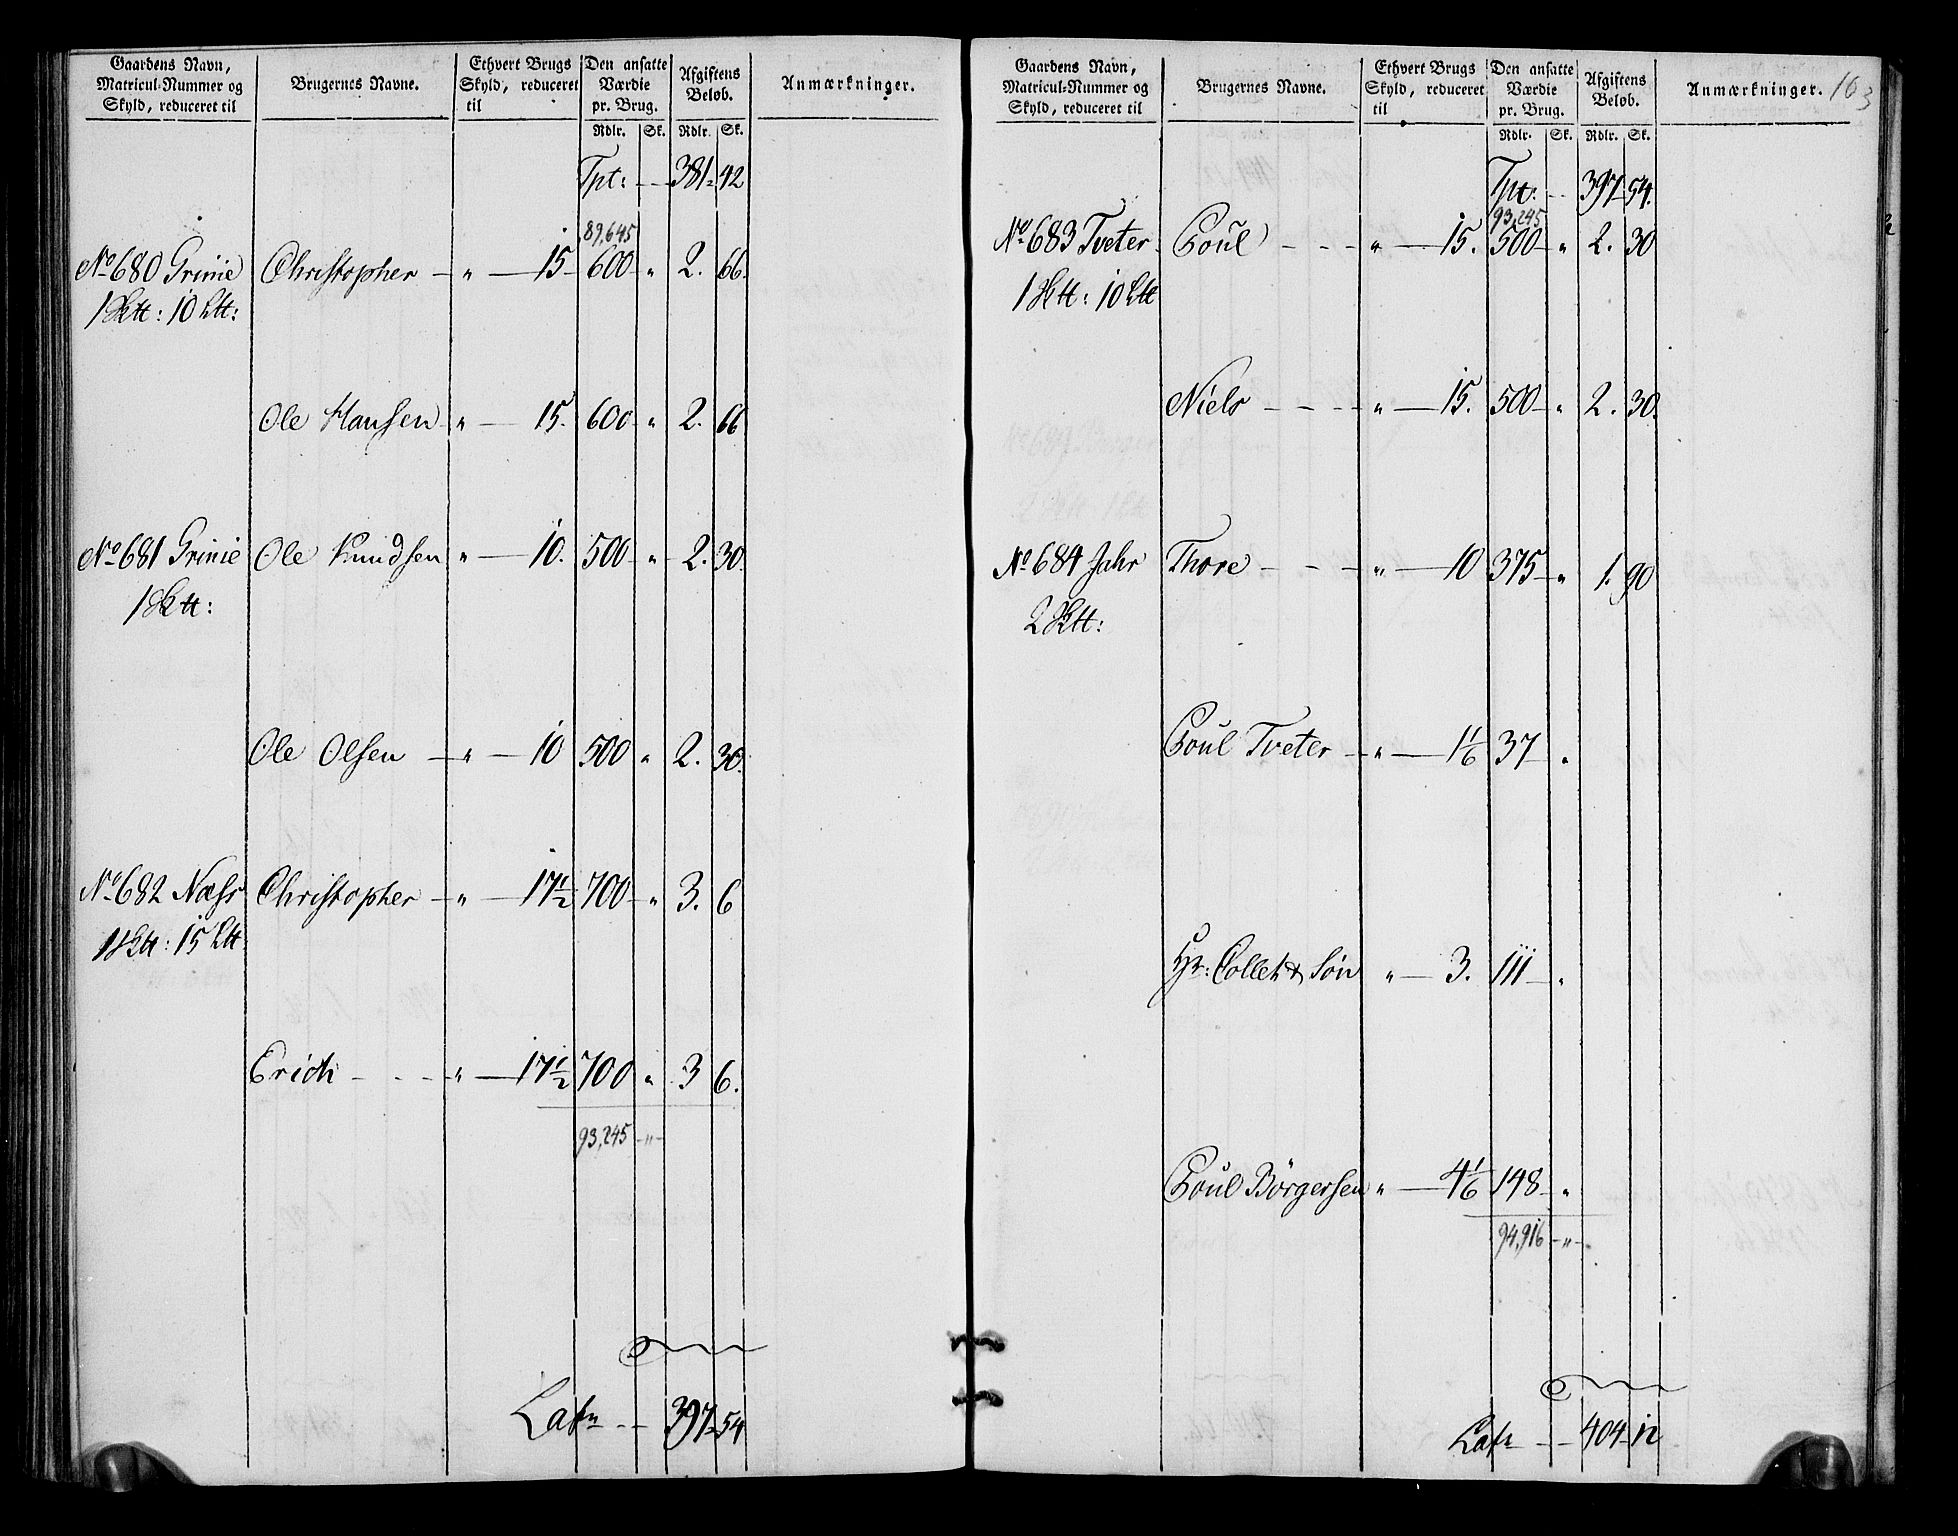 Gaardens Navn,
Matricul-Nummer og
Skyld, reduceret til
Brugernes Navne.
Ethvert Brugs
Skyld, reduceret
til
Den ansatte
Værdie
pr. Brug.
Afgiftens
Beløb.
Anmærkninger.
Rdlr. Sk. Rdlr. Sk.
Tpt: 381 42
89,645
No 680 Grinie Christopher " 15 600 " 2. 66.
1 Sktt: 10 Ltt:
Ole Hansen " 15. 600 " 2. 66
No 681 Grinie Ole Knudsen " 10. 500 " 2. 30.
1 Sktt:
Ole Olsen " 10 500 " 2. 30.
No 682 Næss Christopher " 17½ 700 " 3. 6
1 Sktt: 15 Ltt
Erich " 17½ 700 " 3 6.
93,245 "
Lats 397 54
Gaardens Navn,
Matricul-Nummer og
Skyld, reduceret til
Brugernes Navne.
Ethvert Brugs
Skyld, reduceret
til
Den ansatte
Værdie
pr. Brug.
Afgiftens
Beløb.
Anmærkninger. 163
Rdlr. Sk. Rdlr. Sk.
Tpt: 397 54.
93,245
No 683 Tveter Poul " 15. 500 " 2. 30
1 Sktt: 10 Ltt
Niels " 15. 500 " 2. 30.
No 684 Jahr Thore " 10 375 " 1. 90
2 Sktt:
Poul Tveter " 1 1/6 37 "
Hr: Collet & Søn " 3. 111 "
Poul Börgersen " 4 1/6 148 "
94,916 "
Lats 404 12